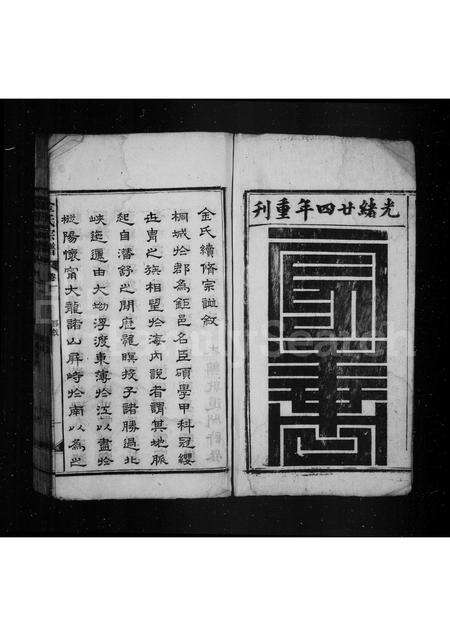 光緒廿四年重刊
金氏續脩宗譜敘
桐城於郡為鉅邑名臣碩學甲科冠纓
世胄之族相望於海內說者謂其地脈
起自潛舒之間龍眠投子諸勝過北
峽迤邐由大坳浮渡東薄於江以盡於
樅陽懷甯大龍諸山屏峙於南以為之